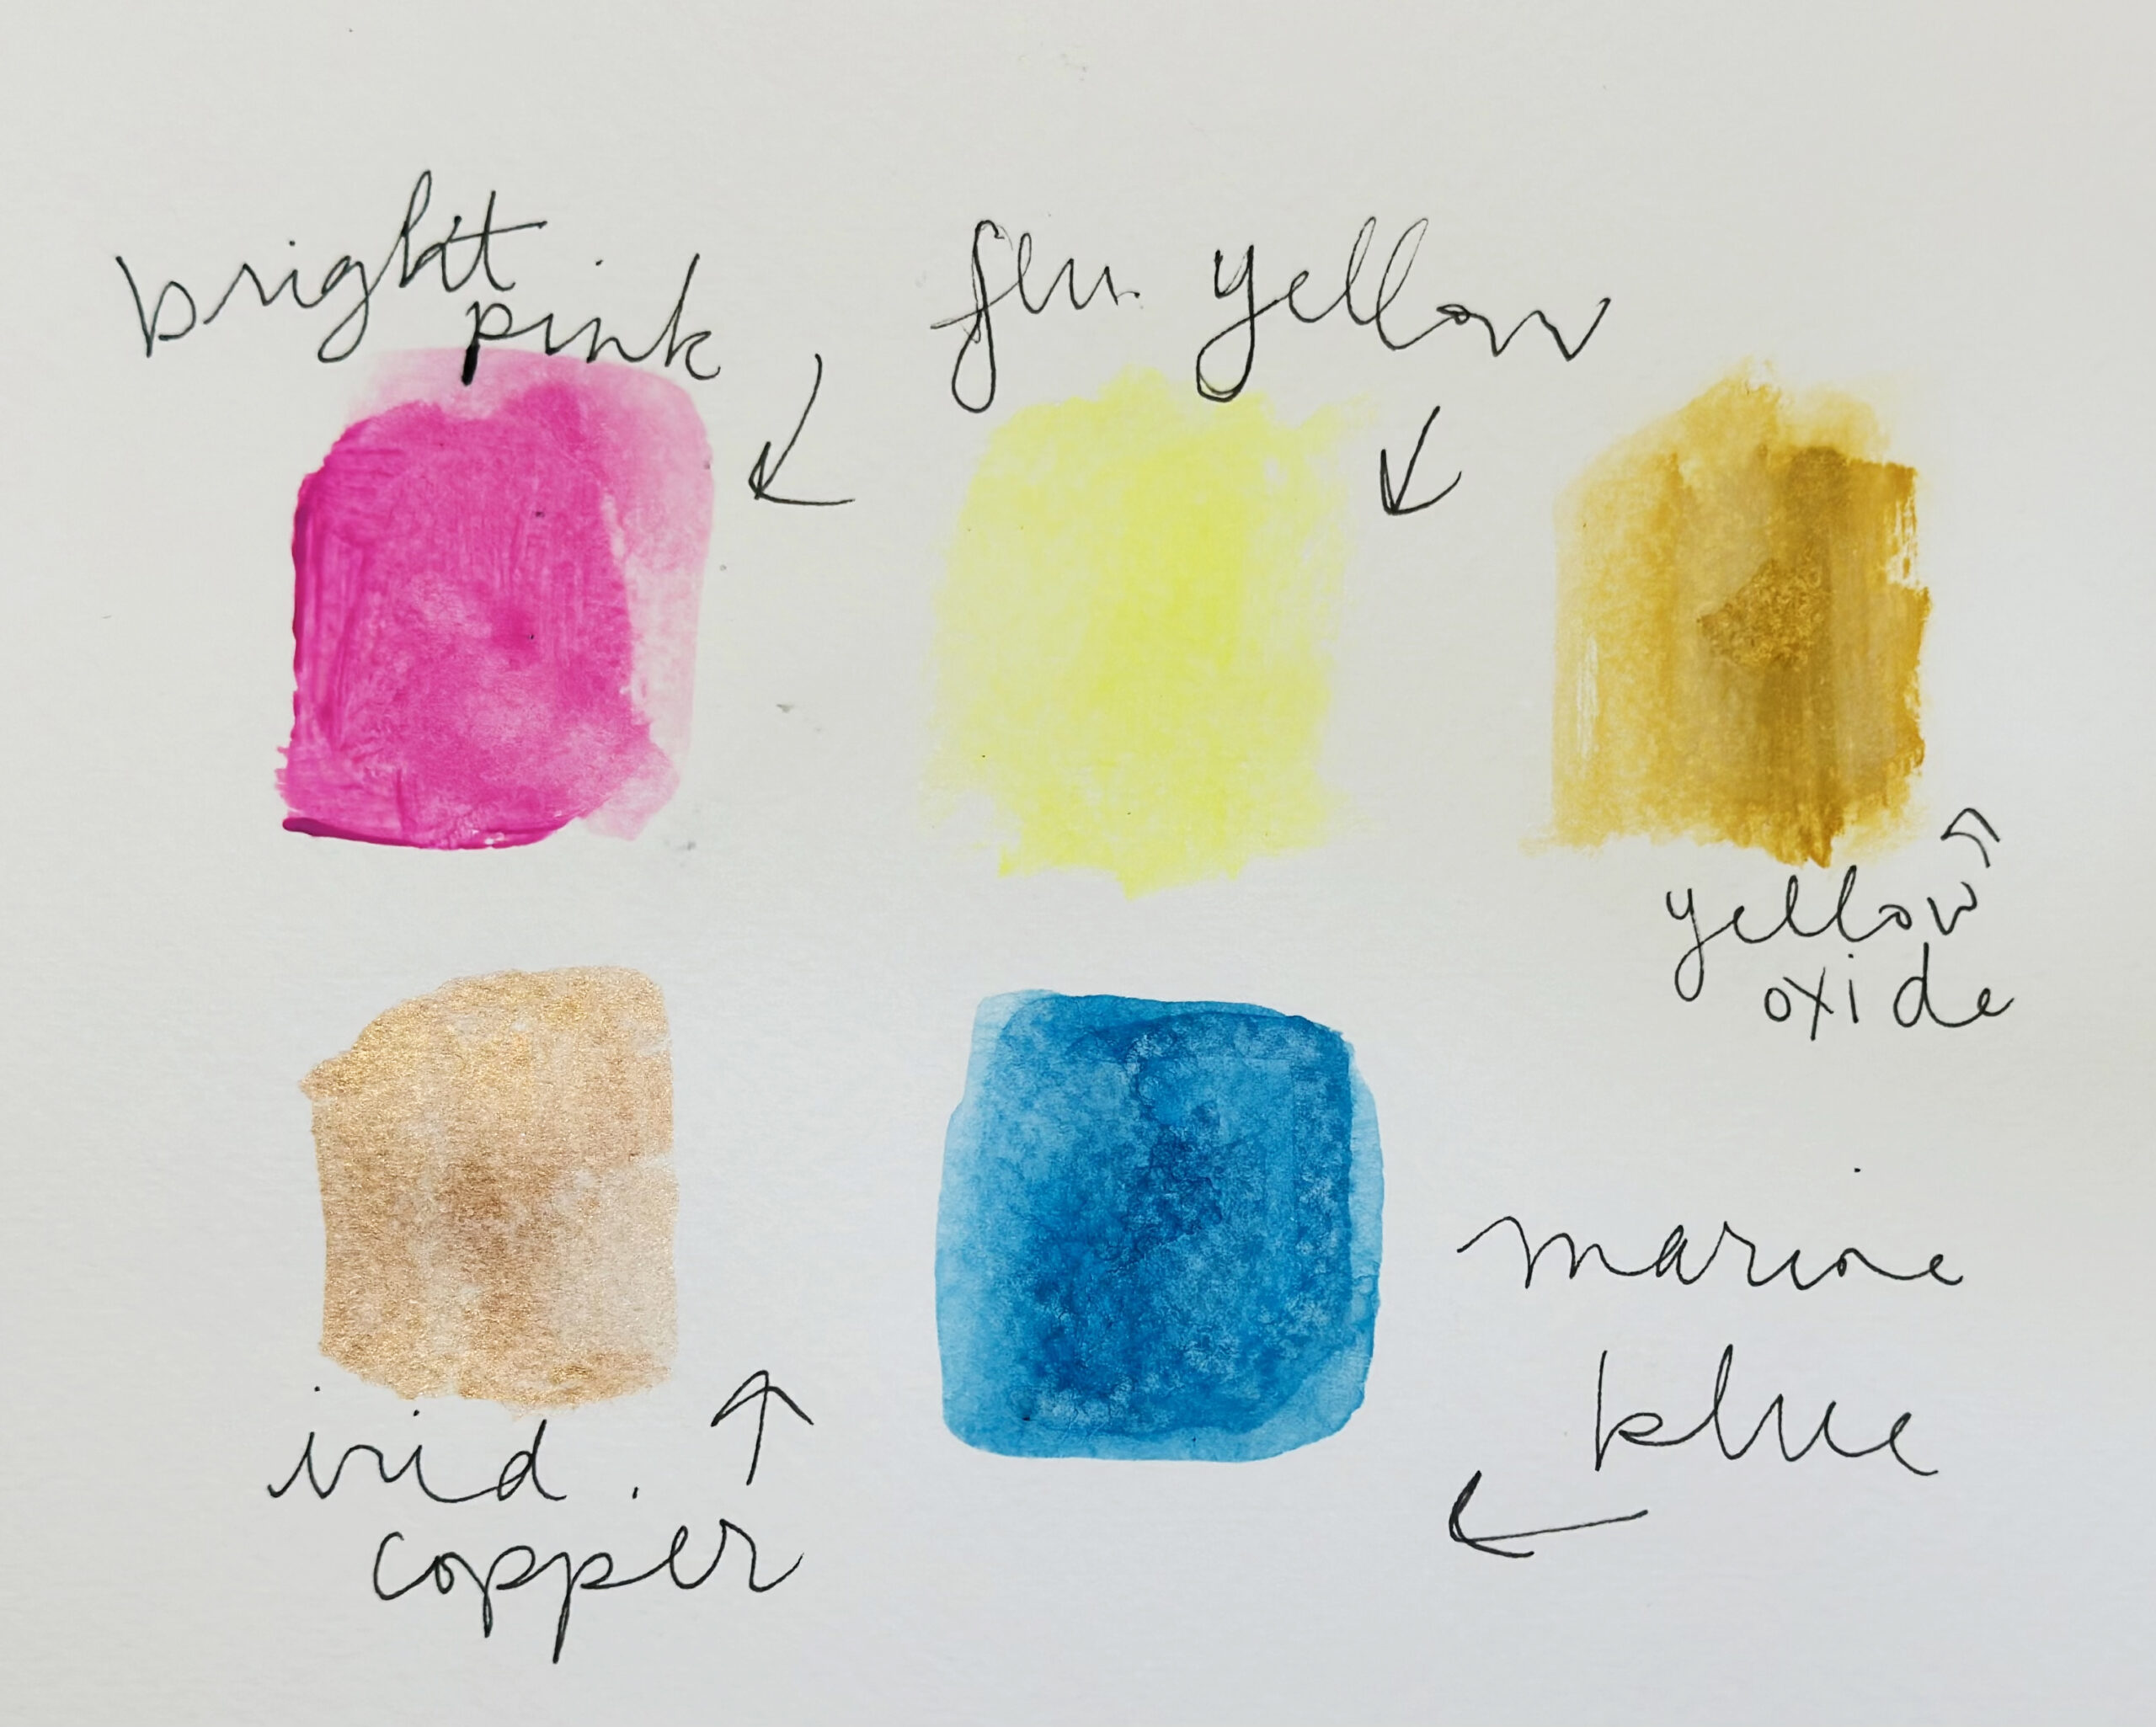 bright
pink
flu. yellow
yellow
oxide
irid.
copper
marine
blue